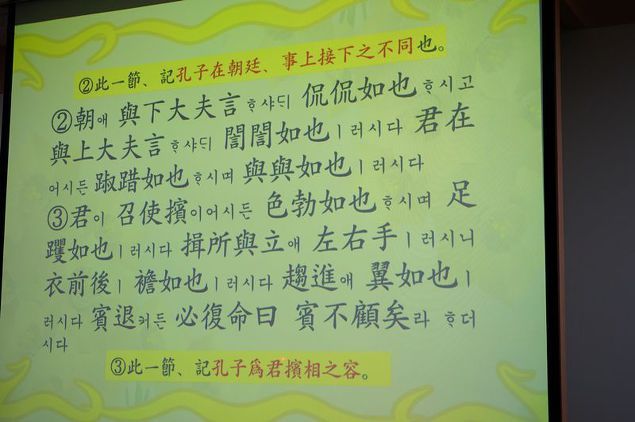 ②此一節、記孔子在朝廷、事上接下之不同也。
②朝애 與下大夫言ᄒᆞ샤ᄃᆡ 侃侃如也ᄒᆞ시고
與上大夫言ᄒᆞ샤ᄃᆡ 誾誾如也ㅣ러시다 君在
어시든 踧踖如也ᄒᆞ시며 與與如也ㅣ러시다
③君이 召使擯이어시든 色勃如也ᄒᆞ시며 足
躩如也ㅣ러시다 揖所與立애 左右手ㅣ러시니
衣前後ㅣ 襜如也ㅣ러시다 趨進애 翼如也ㅣ
러시다 賓退커든 必復命曰 賓不顧矣라 ᄒᆞ더
시다
③此一節、記孔子爲君擯相之容。